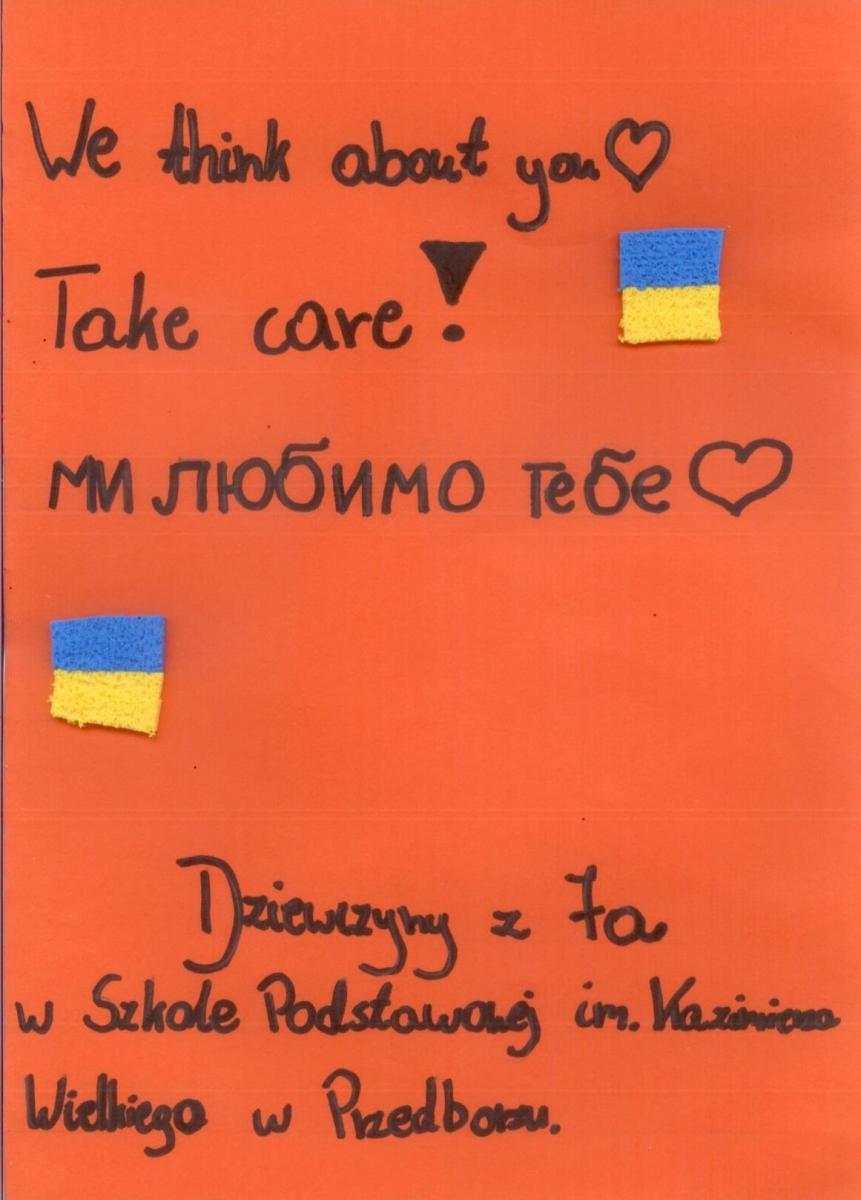 We think about you♡
Take care!
ми любимо тебе♡
Dziewczyny z 7a
w Szkole Podstawowej im. Kazimierza
Wielkiego w Przedborzu.